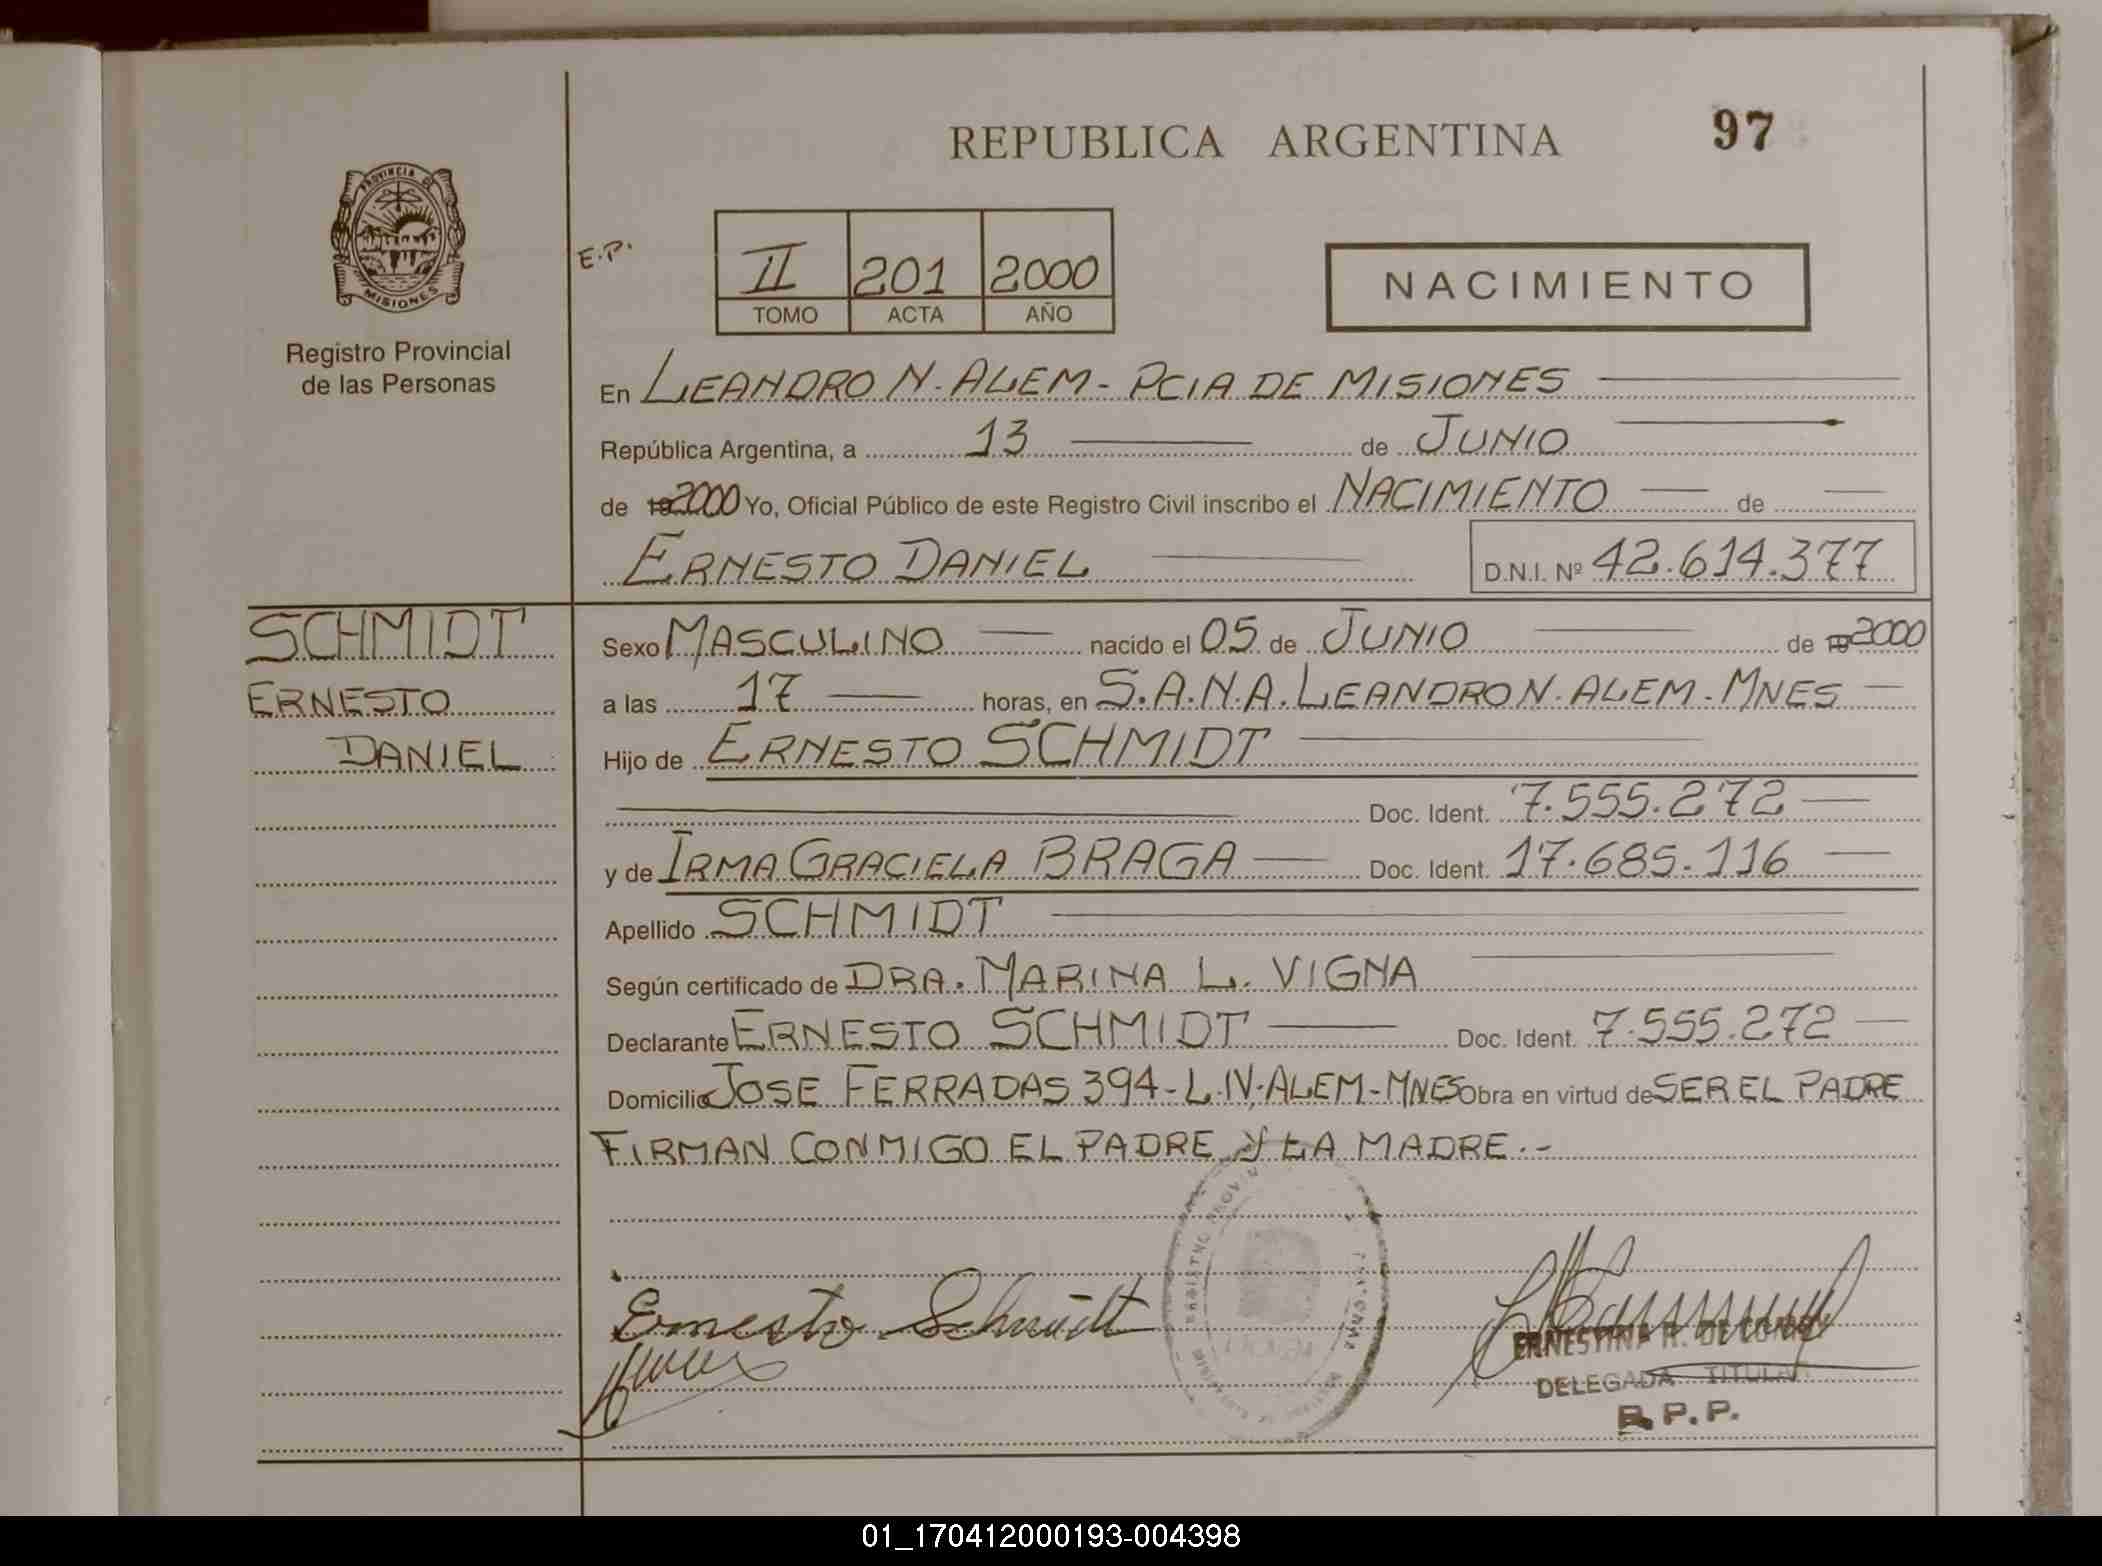 REPUBLICA ARGENTINA
97
PROVINCIA DE
MISIONES
Registro Provincial
de las Personas
E.P.
II 201 2000
TOMO ACTA AÑO
NACIMIENTO
En LEANDRO N. ALEM - PCIA DE MISIONES
República Argentina, a 13 de JUNIO
de 19 2000 Yo, Oficial Público de este Registro Civil inscribo el NACIMIENTO de
ERNESTO DANIEL
D.N.I. Nº 42.614.377
SCHMIDT
ERNESTO
DANIEL
Sexo MASCULINO nacido el 05 de JUNIO de 19 2000
a las 17 horas, en S.A.N.A. LEANDRO N. ALEM - MNES
Hijo de ERNESTO SCHMIDT
Doc. Ident. 7.555.272
y de IRMA GRACIELA BRAGA Doc. Ident. 17.685.116
Apellido SCHMIDT
Según certificado de DRA. MARINA L. VIGNA
Declarante ERNESTO SCHMIDT Doc. Ident. 7.555.272
Domicilio JOSE FERRADAS 394 - L.N. ALEM - MNES Obra en virtud de SER EL PADRE
FIRMAN CONMIGO EL PADRE Y LA MADRE.-
Ernesto Schmidt
ERNESTINA R. DE
DELEGADA TITULAR
R.P.P.
01_170412000193-004398